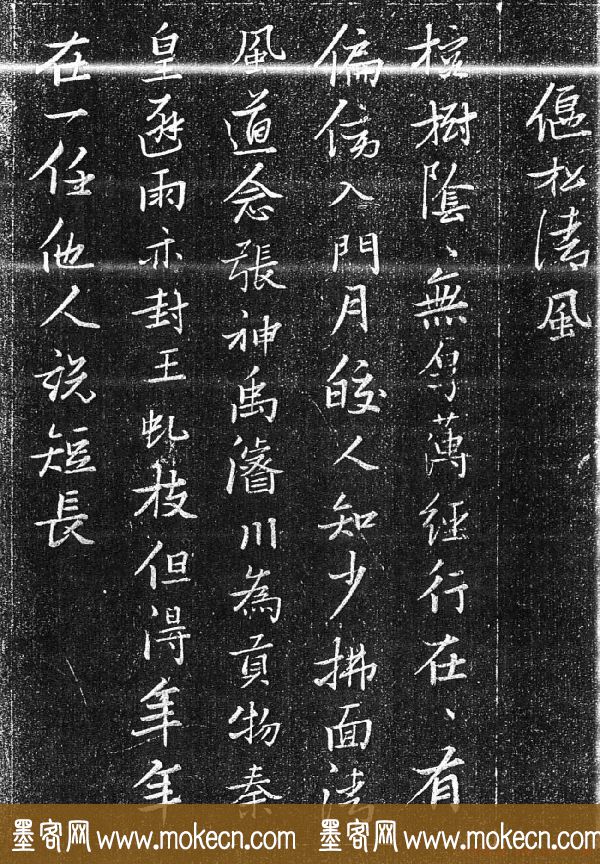 偃松清風
樹陰〻無萬經行在〻有
偏傍入門月皎人知少拂面清
風道念張神禹濬川為貢物秦
皇避雨亦封王虬枝但得年年
在一任他人說短長
墨客网 www.mokecn.com 墨客网 www.mokecn.com